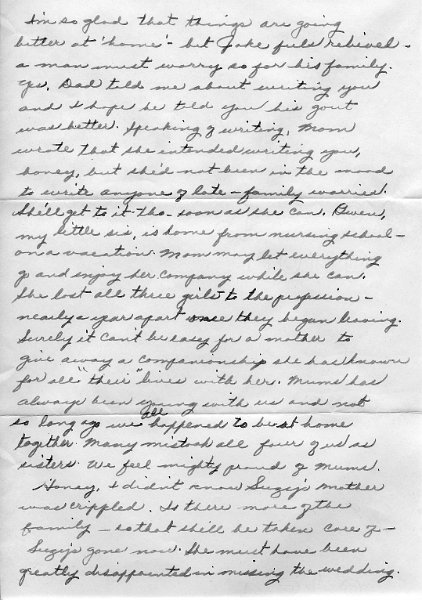 I'm so glad that things are going
better at 'home' - bet Jake feels relieved -
a man must worry so for his family.
Yes, Dad told me about writing you
and I hope he told you his gout
was better. Speaking of writing, Mom
wrote that she intended writing you,
honey, but she'd not been in the mood
to write anyone of late - family worries!
She'll get to it tho- soon as she can.
my little sis, is home from nursing school -
on a vacation. Mom may let everything
go and enjoy her company while she can.
She lost all three girls to the profession -
nearly a year apart once they began leaving.
Surely it can't be easy for a mother to
give away a companionship she has known
for all "their" lives with her. Mums has
always been young with us and not
so long ago we all happened to be at home
together. Many mistook all four of us as
sisters. We feel mighty proud of Mums.
Honey, I didn't know Suzy's mother
was crippled. Is there more of the
family - so that she'll be taken care of -
Suzy's gone now. She must have been
greatly disappointed in missing the wedding.